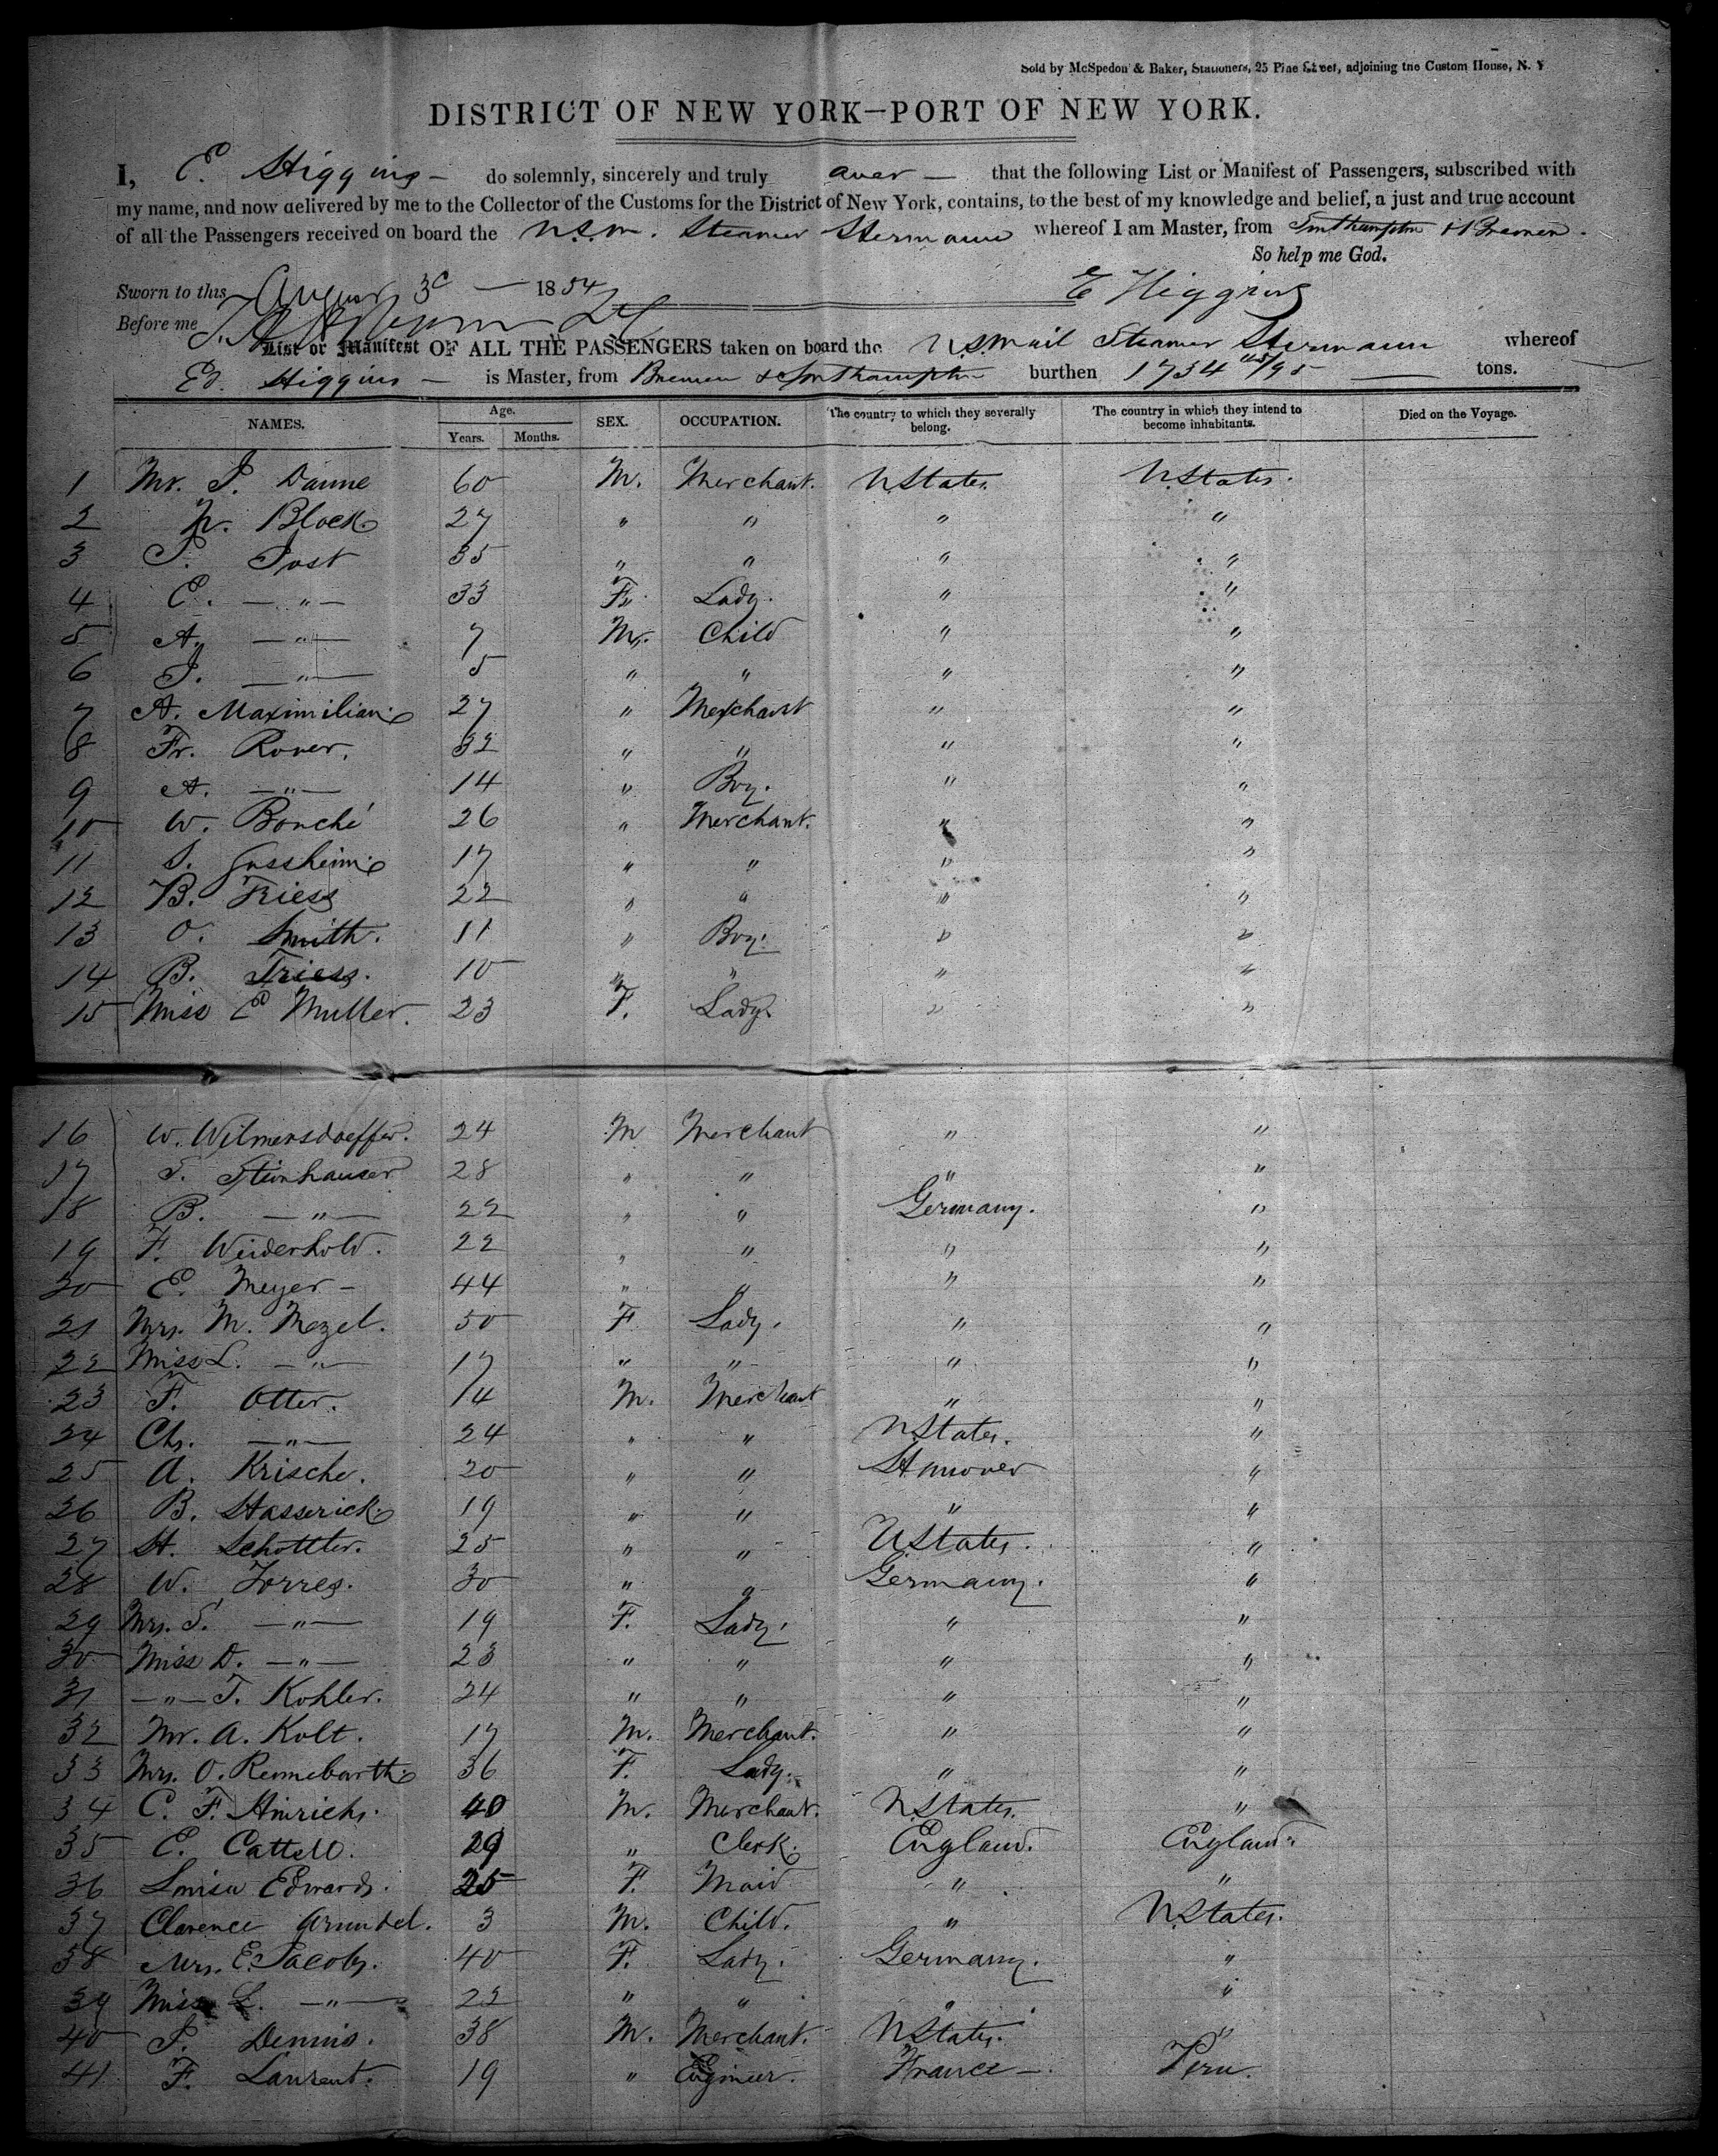 Sold by McSpedon & Baker, Stationers, 25 Pine Street, adjoining the Custom House, N. Y
DISTRICT OF NEW YORK—PORT OF NEW YORK.
I, E. Higgins — do solemnly, sincerely and truly aver — that the following List or Manifest of Passengers, subscribed with
my name, and now delivered by me to the Collector of the Customs for the District of New York, contains, to the best of my knowledge and belief, a just and true account
of all the Passengers received on board the U.S.M. Steamer Hermann whereof I am Master, from Southampton & Bremen.
So help me God.
Sworn to this August 3d — 1854 E Higgins
Before me
List or Manifest OF ALL THE PASSENGERS taken on board the U.S. Mail Steamer Hermann whereof
Ed. Higgins — is Master, from Bremen & Southampton burthen 1734 45/95 — tons.
NAMES. Age. Years. Months. SEX. OCCUPATION. The country to which they severally belong. The country in which they intend to become inhabitants. Died on the Voyage.
1 Mr. J. Daume 60 M. Merchant. U.States. U.States.
2 N. Block 27 " " " "
3 J. Jost 35 " " " "
4 C. —"— 33 F. Lady. " "
5 A. —"— 7 M. Child " "
6 J. —"— 5 " " " "
7 A. Maximilian 27 " Merchant " "
8 Fr. Rover. 32 " " " "
9 A. —"— 14 " Boy. " "
10 W. Bonché 26 " Merchant. " "
11 S. Gussheim 17 " " " "
12 B. Triess 22 " " " "
13 O. Smith. 11 " Boy. " "
14 B. Triess. 10 " " " "
15 Miss E Muller. 23 F. Lady. " "
16 W. Wilmersdoeffer. 24 M Merchant " "
17 S. Steinhauser 28 " " " "
18 B. —"— 22 " " Germany. "
19 F. Weiderhold. 22 " " " "
20 E. Meyer — 44 " " " "
21 Mrs. M. Mezel. 50 F Lady. " "
22 Miss L. —"— 17 " " " "
23 F. Otter. 14 M. Merchant " "
24 Ch. —"— 24 " " U.States. "
25 A. Krische. 20 " " Hanover "
26 B. Hasserick 19 " " " "
27 H. Schottler. 25 " " UStates. "
28 W. Torres. 30 " " Germany. "
29 Mrs. S. —"— 19 F. Lady. " "
30 Miss D. —"— 23 " " " "
31 —"— T. Kohler. 24 " " " "
32 Mr. A. Kolt. 17 M. Merchant. " "
33 Mrs. O. Rennebarth 36 F. Lady. " "
34 C. F. Hinrichs. 40 M. Merchant. U.States. "
35 C. Cattell. 29 " Clerk. England. England.
36 Louisa Edwards. 25 F. Maid " "
37 Clarence Arundel. 3 M. Child. " U.States.
38 Mrs. E. Jacoby. 40 F. Lady. Germany. "
39 Miss L. —"— 22 " " " "
40 J. Dennis. 38 M. Merchant. U.States. "
41 F. Laurent. 19 " Engineer. France — Peru.